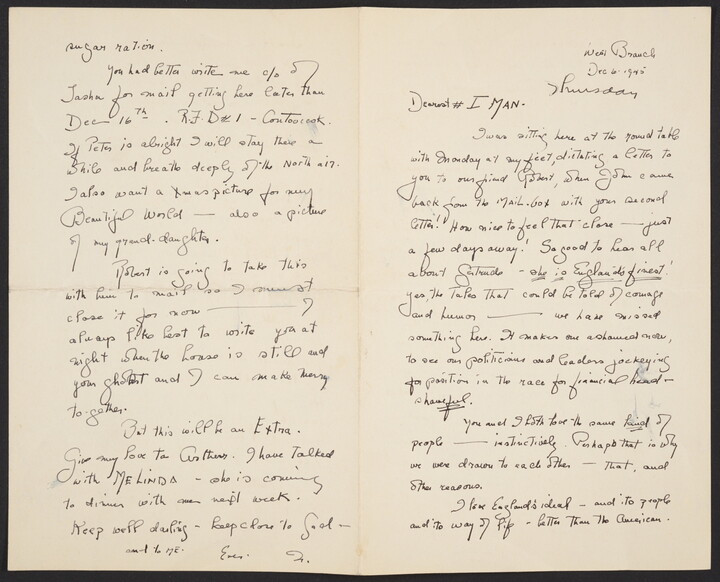 West Branch
Dec 6. 1945
Thursday
Dearest # I MAN.
I was sitting here at the round table
with Monday at my feet, dictating a letter to
you to our friend Robert, when John came
back from the MAIL-box with your second
letter!! How nice to feel that close — just
a few days away! So good to hear all
about Gertrude — she is England's finest!
yes, the tales that could be told of courage
and humor — we have missed
something here. It makes one ashamed now,
to see our politicians and leaders jockeying
for position in the race for financial
shameful.
You and I both love the same kind of
people — instinctively. Perhaps that is why
we were drawn to each other — that, and
other reasons.
I love England's ideal — and its people
and its way of life — better than the American.
sugar ration.
You had better write me c/o of
Tasha for mail getting here later than
Dec 16th. R.F.D#1 - Contoocook.
If Peter is alright I will stay there a
while and breathe deeply of the North air.
I also want a Xmas picture for my
Beautiful World — also a picture
of my grand-daughter.
Robert is going to take this
with him to mail so I must
close it for now — I
always like best to write you at
night when the house is still and
your ghost and I can make merry
to-gether.
But this will be an Extra.
Give my love to I have talked
with MELINDA - she is coming
to dinner with me next week.
Keep well darling - keep close to God -
and to ME. Ever.